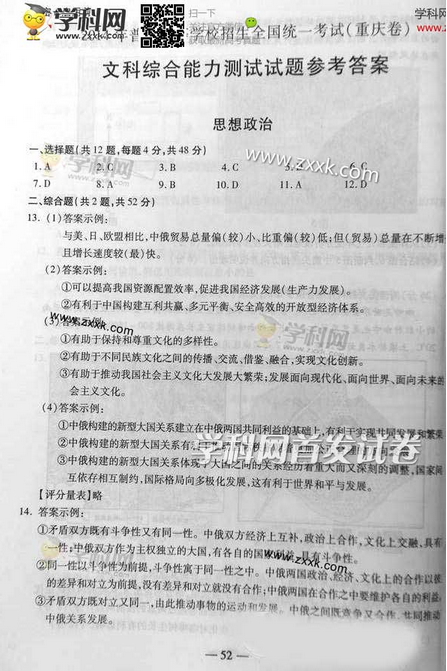 学科网
扫一下
学科网
www.zxxk.com
校招生全国统一考试(重庆卷)
文科综合能力测试试题参考答案
思想政治
www.zxxk.com
一、选择题(共12题,每题4分,共48分)
1. A 2. C 3. B 4. C 6. C
7. D 8. A 9. B 10. D 11. A 12. D
二、综合题(共2题,共52分)
13. (1)答案示例:
与美、日、欧盟相比,中俄贸易总量偏(较)小、比重偏(较)低;但(贸易)总量在不断增
且增长速度较(最)快。
(2)答案示例:
①可以提高我国资源配置效率,促进我国经济发展(生产力发展)。
②有利于中国构建互利共赢、多元平衡、安全高效的开放型经济体系。
(3)答案示例:
www.zxxk.com
学科网
①有助于保持和尊重文化的多样性。
②有助于不同民族文化之间的传播、交流、借鉴、融合,实现文化创新。
③有助于推动我国社会主义文化大发展大繁荣;发展面向现代化、面向世界、面向未来的
会主义文化。
(4)答案示例:
①中俄构建的新型大国关系建立在中俄两国共同利益的基础上,有利于实现共同发展
②中俄构建的新型大国关系有
学科网首发试卷
③中俄构建的新型大国关系体现了大国之间的关系经历着重大而又深刻的调整,国家间
互依存相互制约,国际格局向多极化发展,这有利于世界和平与发展。
【评分量表】略
14. 答案示例:
①矛盾双方既有斗争性又有同一性。中俄双方经济上互补,政治上合作,文化上交融,具有
一性;中俄双方作为主权独立的大国,有各自的国家利益,具有斗争性。
学科网
www.zxxk.com
②同一性以斗争性为前提,斗争性寓于同一性之中。中俄两国政治、经济、文化上的合作以彼
的差异和对立为前提,没有差异和对立就没有合作;中俄两国在合作之中要维护各自的利益
③矛盾双方既对立又同一,由此推动事物的运动和发展。中俄之间既竞争又合作,共同推动
中俄关系发展。
— 52 —